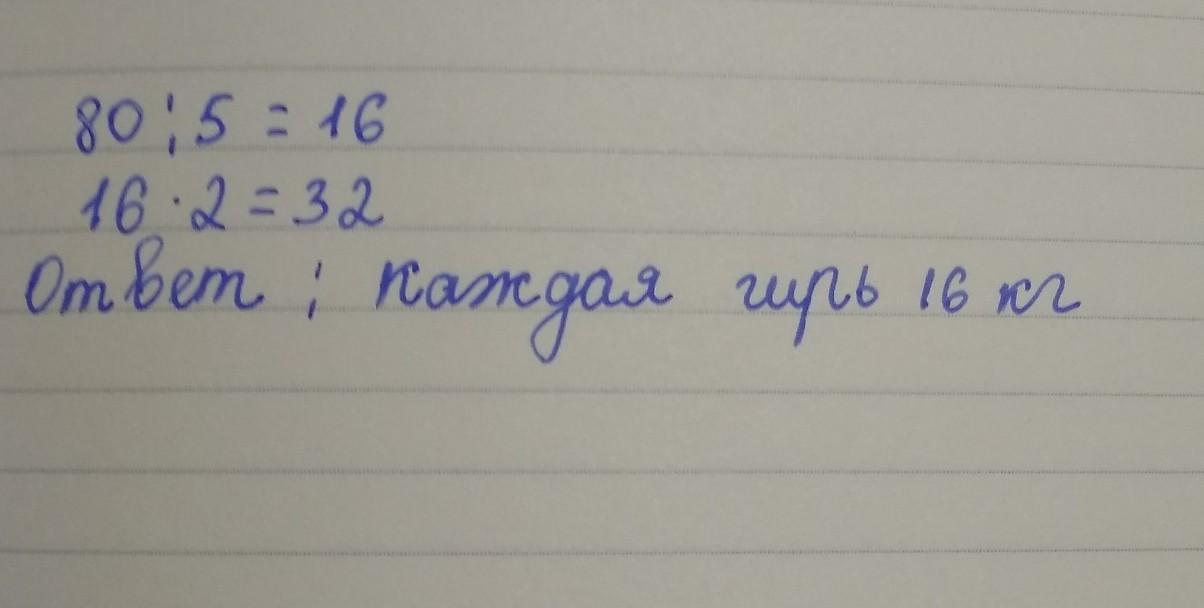 80 : 5 = 16
16 · 2 = 32
Ответ : каждая гирь 16 кг